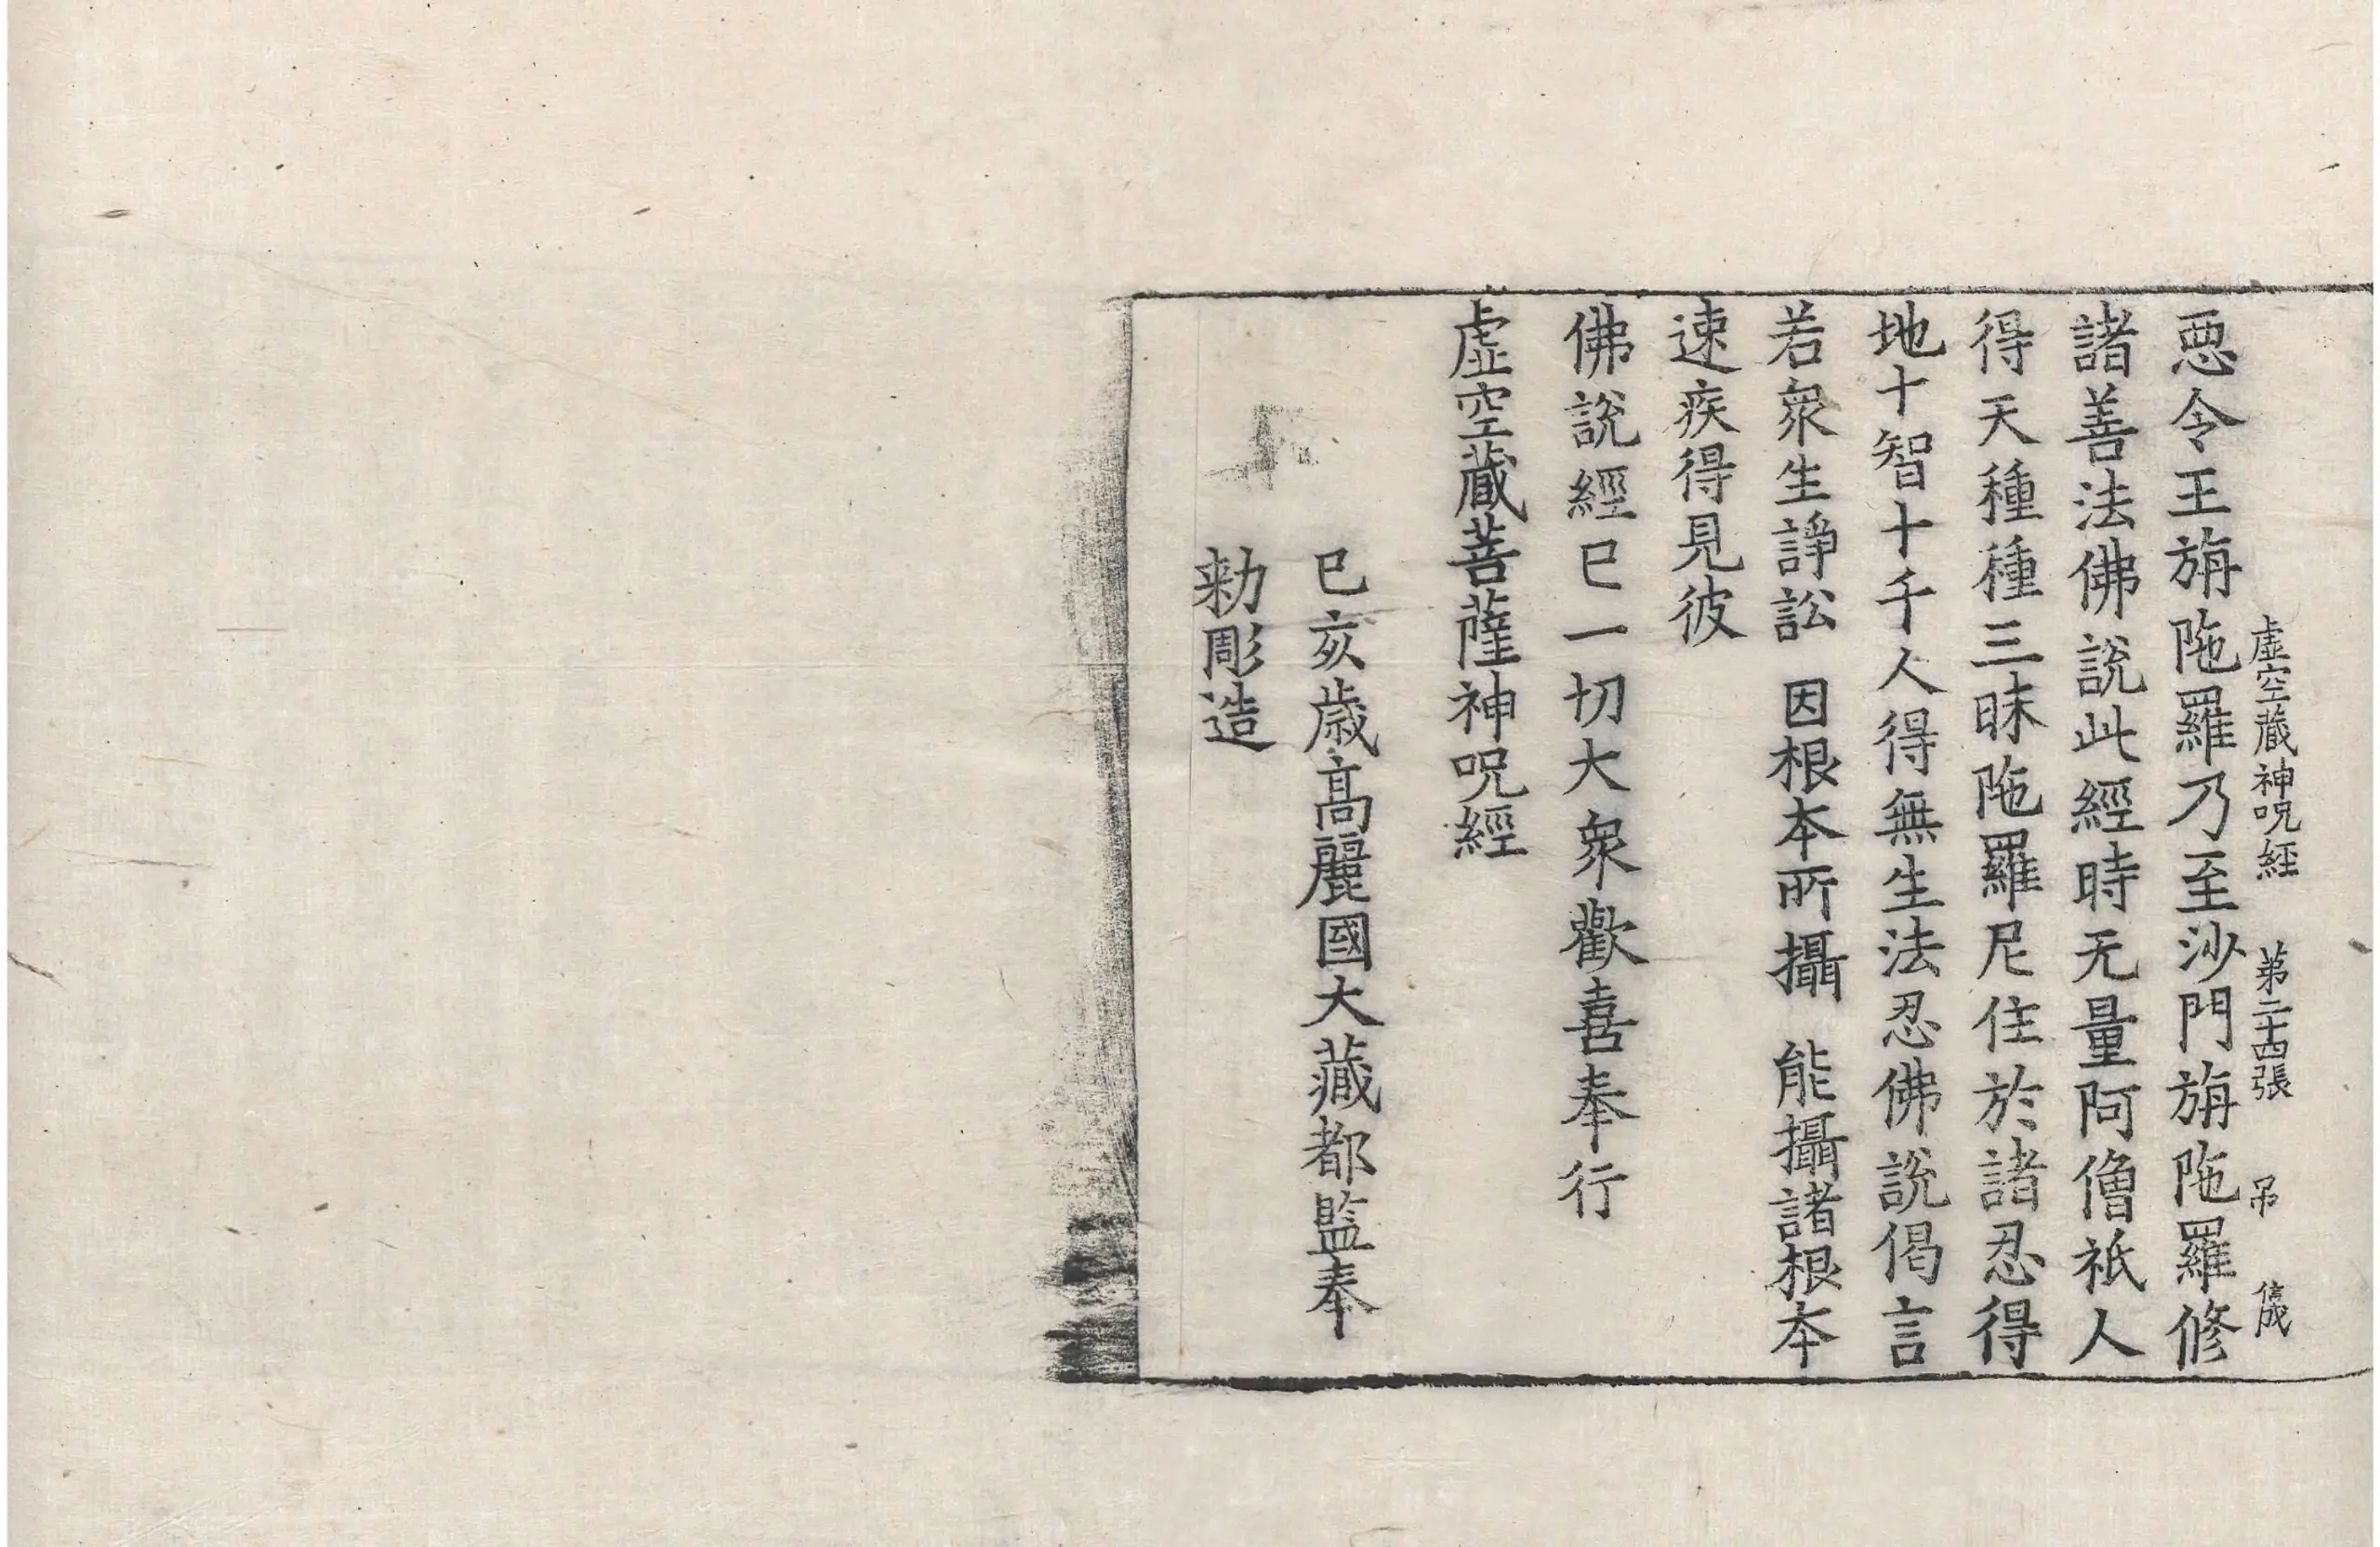 虛空藏神呪經 第二十四張 吊 信成
惡令王旃陁羅乃至沙門旃陁羅修
諸善法佛說此經時无量阿僧祇人
得天種種三昧陁羅尼住於諸忍得
地十智十千人得無生法忍佛說偈言
若衆生諍訟 因根本所攝 能攝諸根本
速疾得見彼
佛說經已一切大衆歡喜奉行
虛空藏菩薩神呪經
己亥歲高麗國大藏都監奉
勑彫造